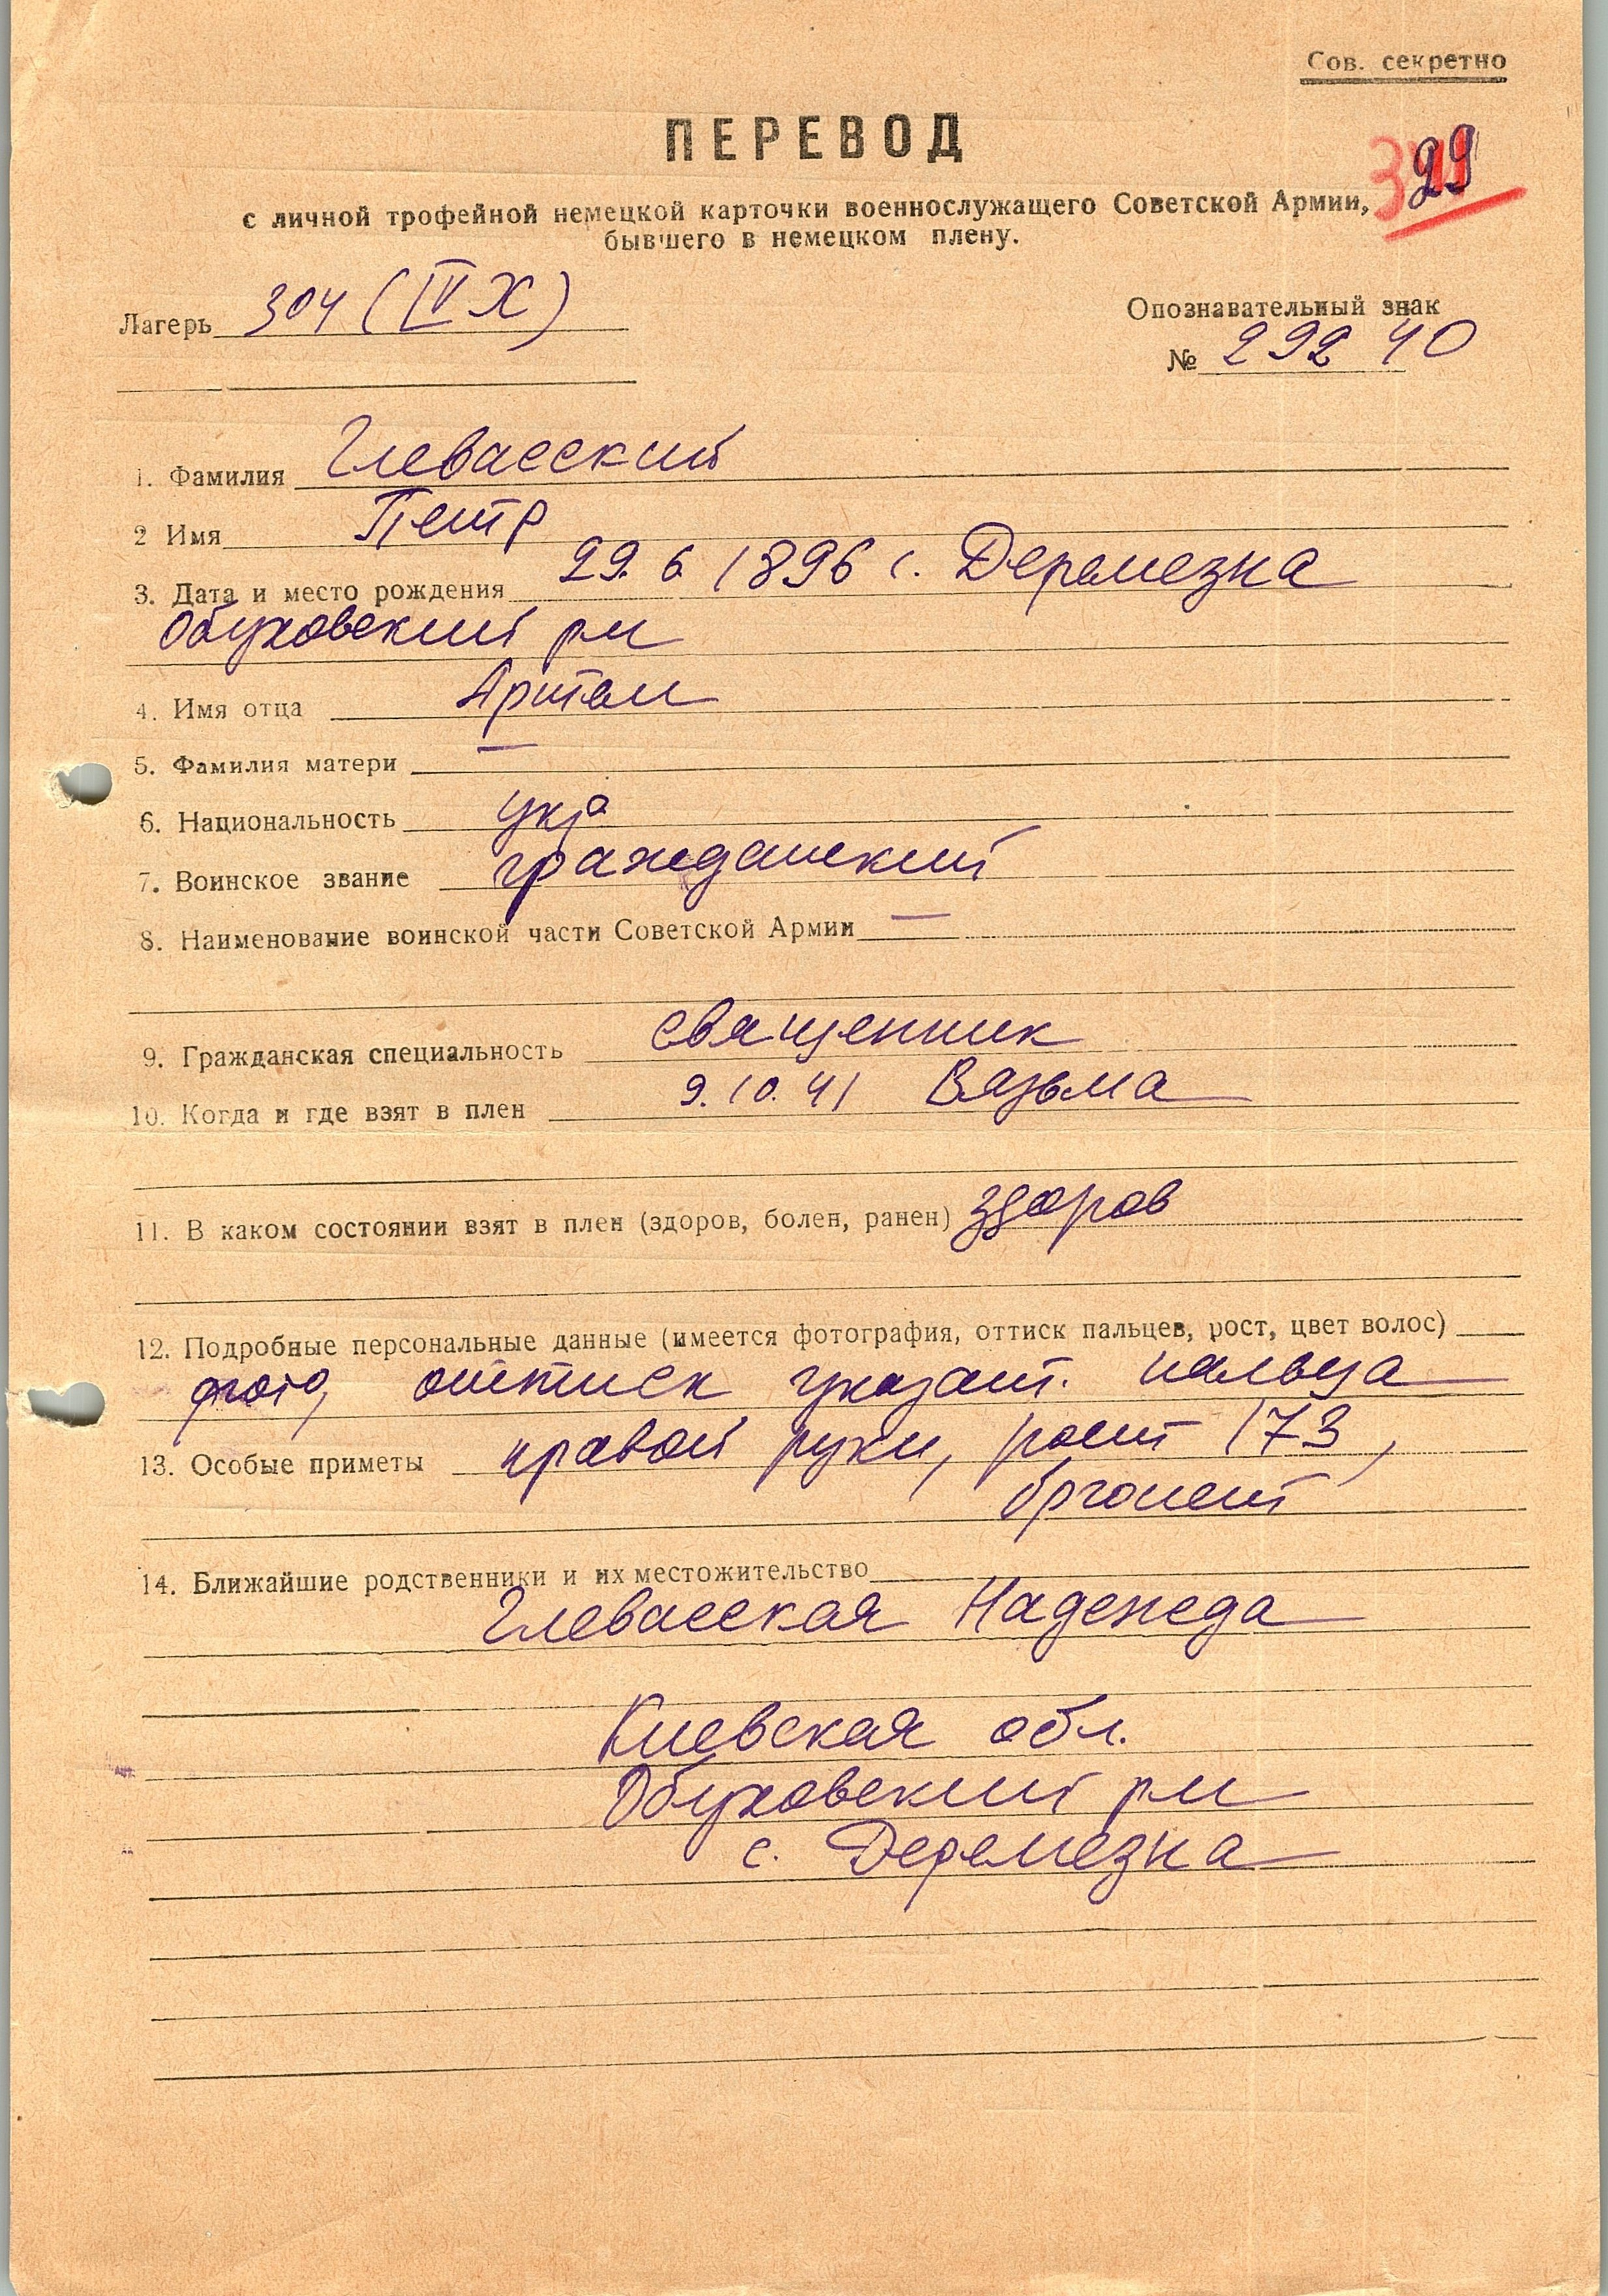 Сов. секретно
ПЕРЕВОД
29
с личной трофейной немецкой карточки военнослужащего Советской Армии,
бывшего в немецком плену.
Лагерь 304 (IV Х)
Опознавательный знак
№ 29240
1. Фамилия Глевасский
2 Имя Петр
3. Дата и место рождения 29. 6. 1896 с. Деремезна
Обуховский рн
4. Имя отца Артем
5. Фамилия матери —
6. Национальность укр
7. Воинское звание гражданский
8. Наименование воинской части Советской Армии —
9. Гражданская специальность священник
10. Когда и где взят в плен 9. 10. 41 Вязьма
11. В каком состоянии взят в плен (здоров, болен, ранен) здоров
12. Подробные персональные данные (имеется фотография, оттиск пальцев, рост, цвет волос)
фото, оттиск указат. пальца
13. Особые приметы правой руки, рост 173,
брюнет
14. Ближайшие родственники и их местожительство
Глевасская Надежда
Киевская обл.
Обуховский рн
с. Деремезна